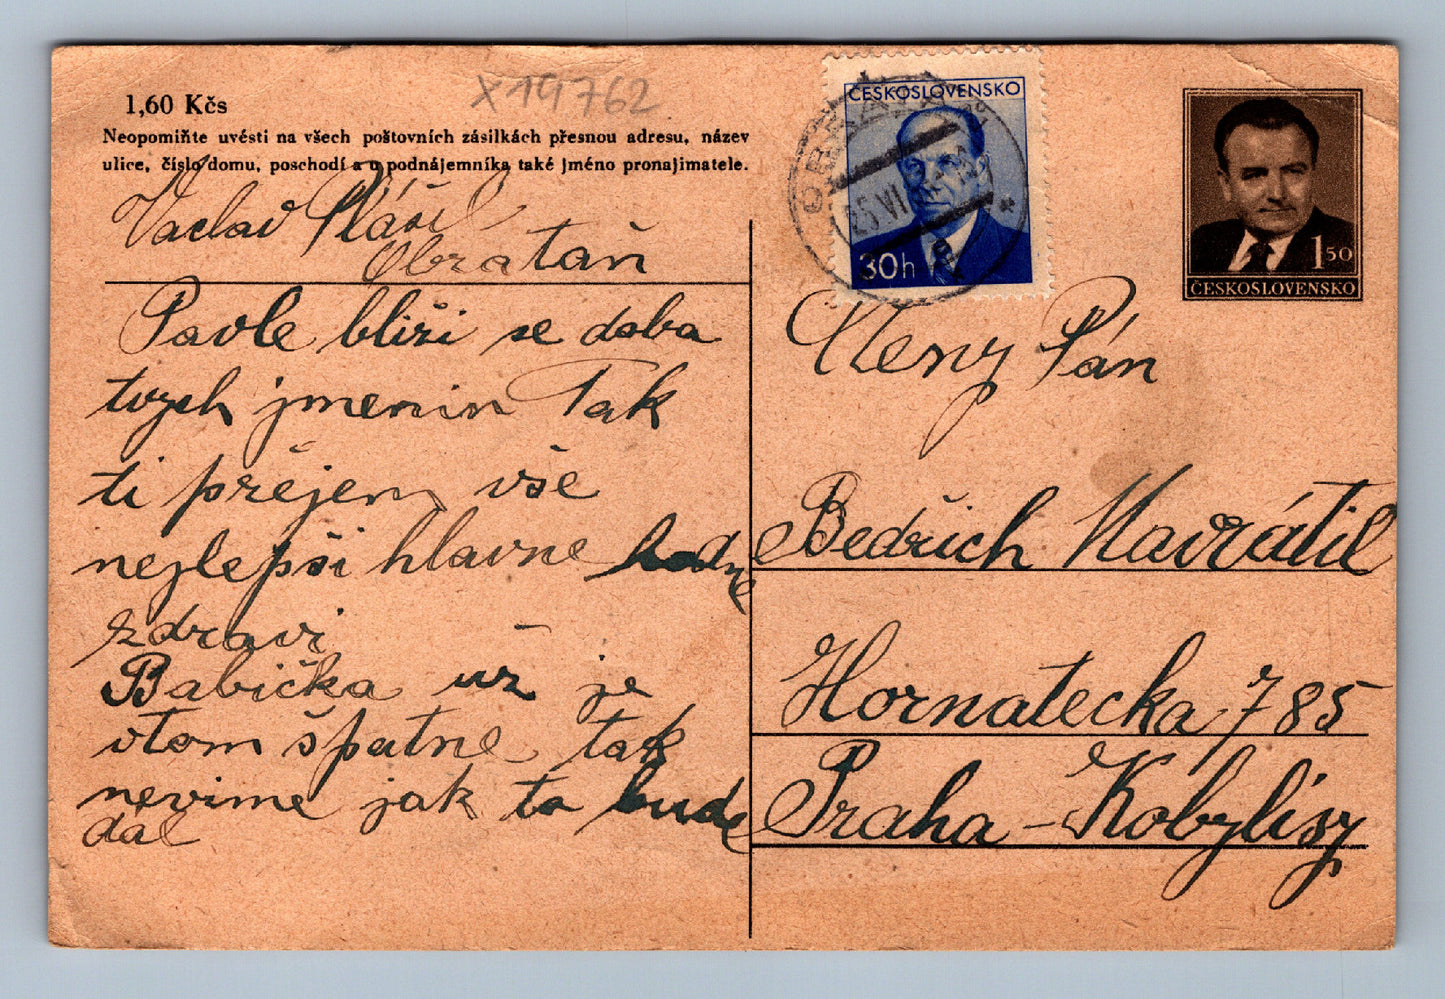 X19762
1,60 Kčs
Neopomiňte uvésti na všech poštovních zásilkách přesnou adresu, název
ulice, číslo domu, poschodí a u podnájemníka také jméno pronajimatele.
Vaclav Plášil
Obrataň
Pavle bliži se doba
tvych jmenin Tak
ti přejem vše
nejlepši hlavne hodne
zdravi
Babička už je
otom špatne tak
nevime jak to bude
dal
ČESKOSLOVENSKO
30h
25 VI
150
ČESKOSLOVENSKO
Cteny Pán
Bedřich Navrátil
Hornatecka 785
Praha - Kobylisy